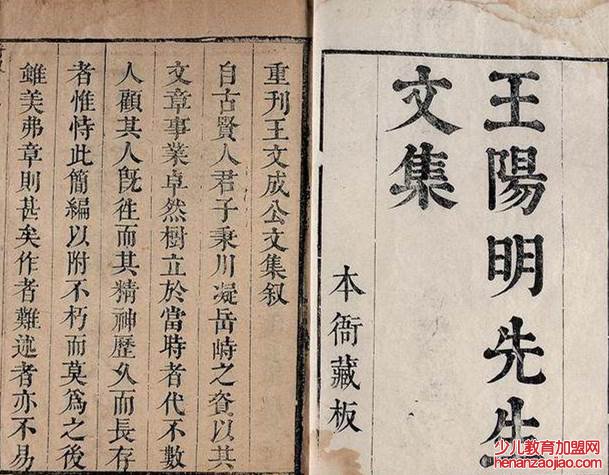 王陽明先生
文集
本衙藏板
重刊王文成公文集叙
自古賢人君子秉川凝岳峙之資以其
文章事業卓然樹立於當時者代不數
人顧其人旣徃而其精神歷久而長存
者惟恃此簡編以附不朽而莫為之後
雖美弗章則甚矣作者難述者亦不易
少儿教育加盟网
henanzaojiao.com